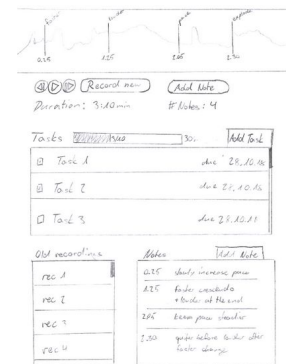 louder
0.25
1.25
2.05
2.30
Record new
Add Note
Duration: 3:10 min
# Notes: 4
Tasks
30.
Add Task
Task 1
due
28.10.18
Task 2
due 28.10.18
Task 3
due 28.10.18
Old recordings
Notes
Add Note
rec 1
rec 2
rec 3
rec 4
0.25
slowly increase
1.25
faster crescendo
+ louder at the end
2.05
keep pace steadier
2.30
quiter before louder after
tester change